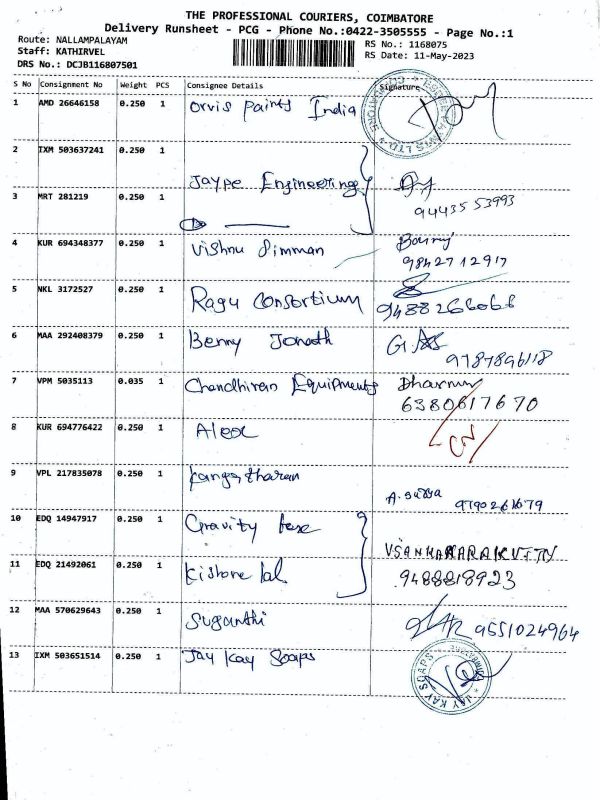 THE PROFESSIONAL COURIERS, COIMBATORE
Delivery Runsheet - PCG - Phone No.:0422-3505555 - Page No.:1
Route: NALLAMPALAYAM
Staff: KATHIRVEL
DRS No.: DCJB116807501
RS No.: 1168075
RS Date: 11-May-2023
S No Consignment No Weight PCS Consignee Details Signature
1 AMD 26646158 0.250 1 Orvis Paints India
2 IXM 503637241 0.250 1
Jaype Engineering
3 MRT 281219 0.250 1
94435 53993
4 KUR 694348377 0.250 1 Vishnu Simman
98427 12917
5 NKL 3172527 0.250 1 Ragu Consortium 9488266066
6 MAA 292408379 0.250 1 Benny Jonath
9787896118
7 VPM 5035113 0.035 1 Chandhiran Equipments Dharnur
6380617670
8 KUR 694776422 0.250 1 Alex
9 VPL 217835078 0.250 1 Kangatharan
A. Surya 9790261679
10 EDQ 14947917 0.250 1 Gravity
11 EDQ 21492061 0.250 1 Kishore lal
9488818923
12 MAA 570629643 0.250 1 Suganthi 9551024964
13 IXM 503651514 0.250 1 Jay Kay Soaps
JAY KAY SOAPS